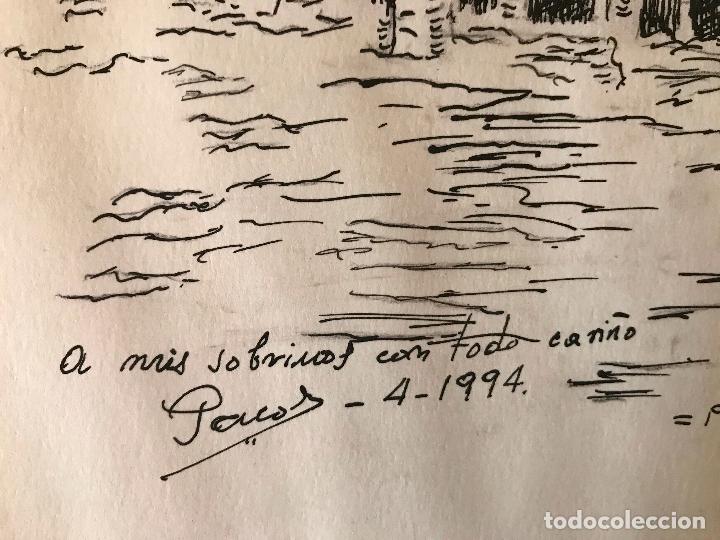 A mis sobrinos con todo cariño
Paco - 4-1994.
=
todocoleccion